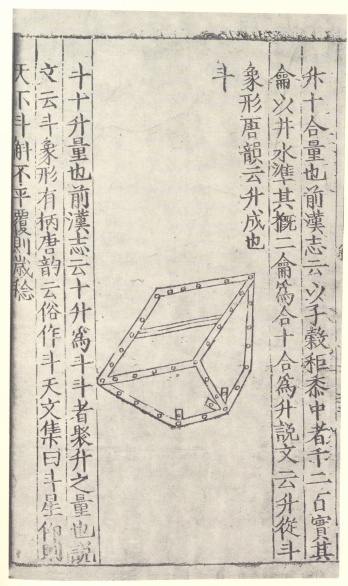 升十合量也前漢志云以子穀秬黍中者千二百實其
龠以井水準其槪二龠爲合十合爲升說文云升從斗
象形唐韻云升成也
斗
斗十升量也前漢志云十升爲斗斗者聚升之量也說
文云斗象形有柄唐韵云俗作斗天文集曰斗星仰則
天下斗斛不平覆則歲稔